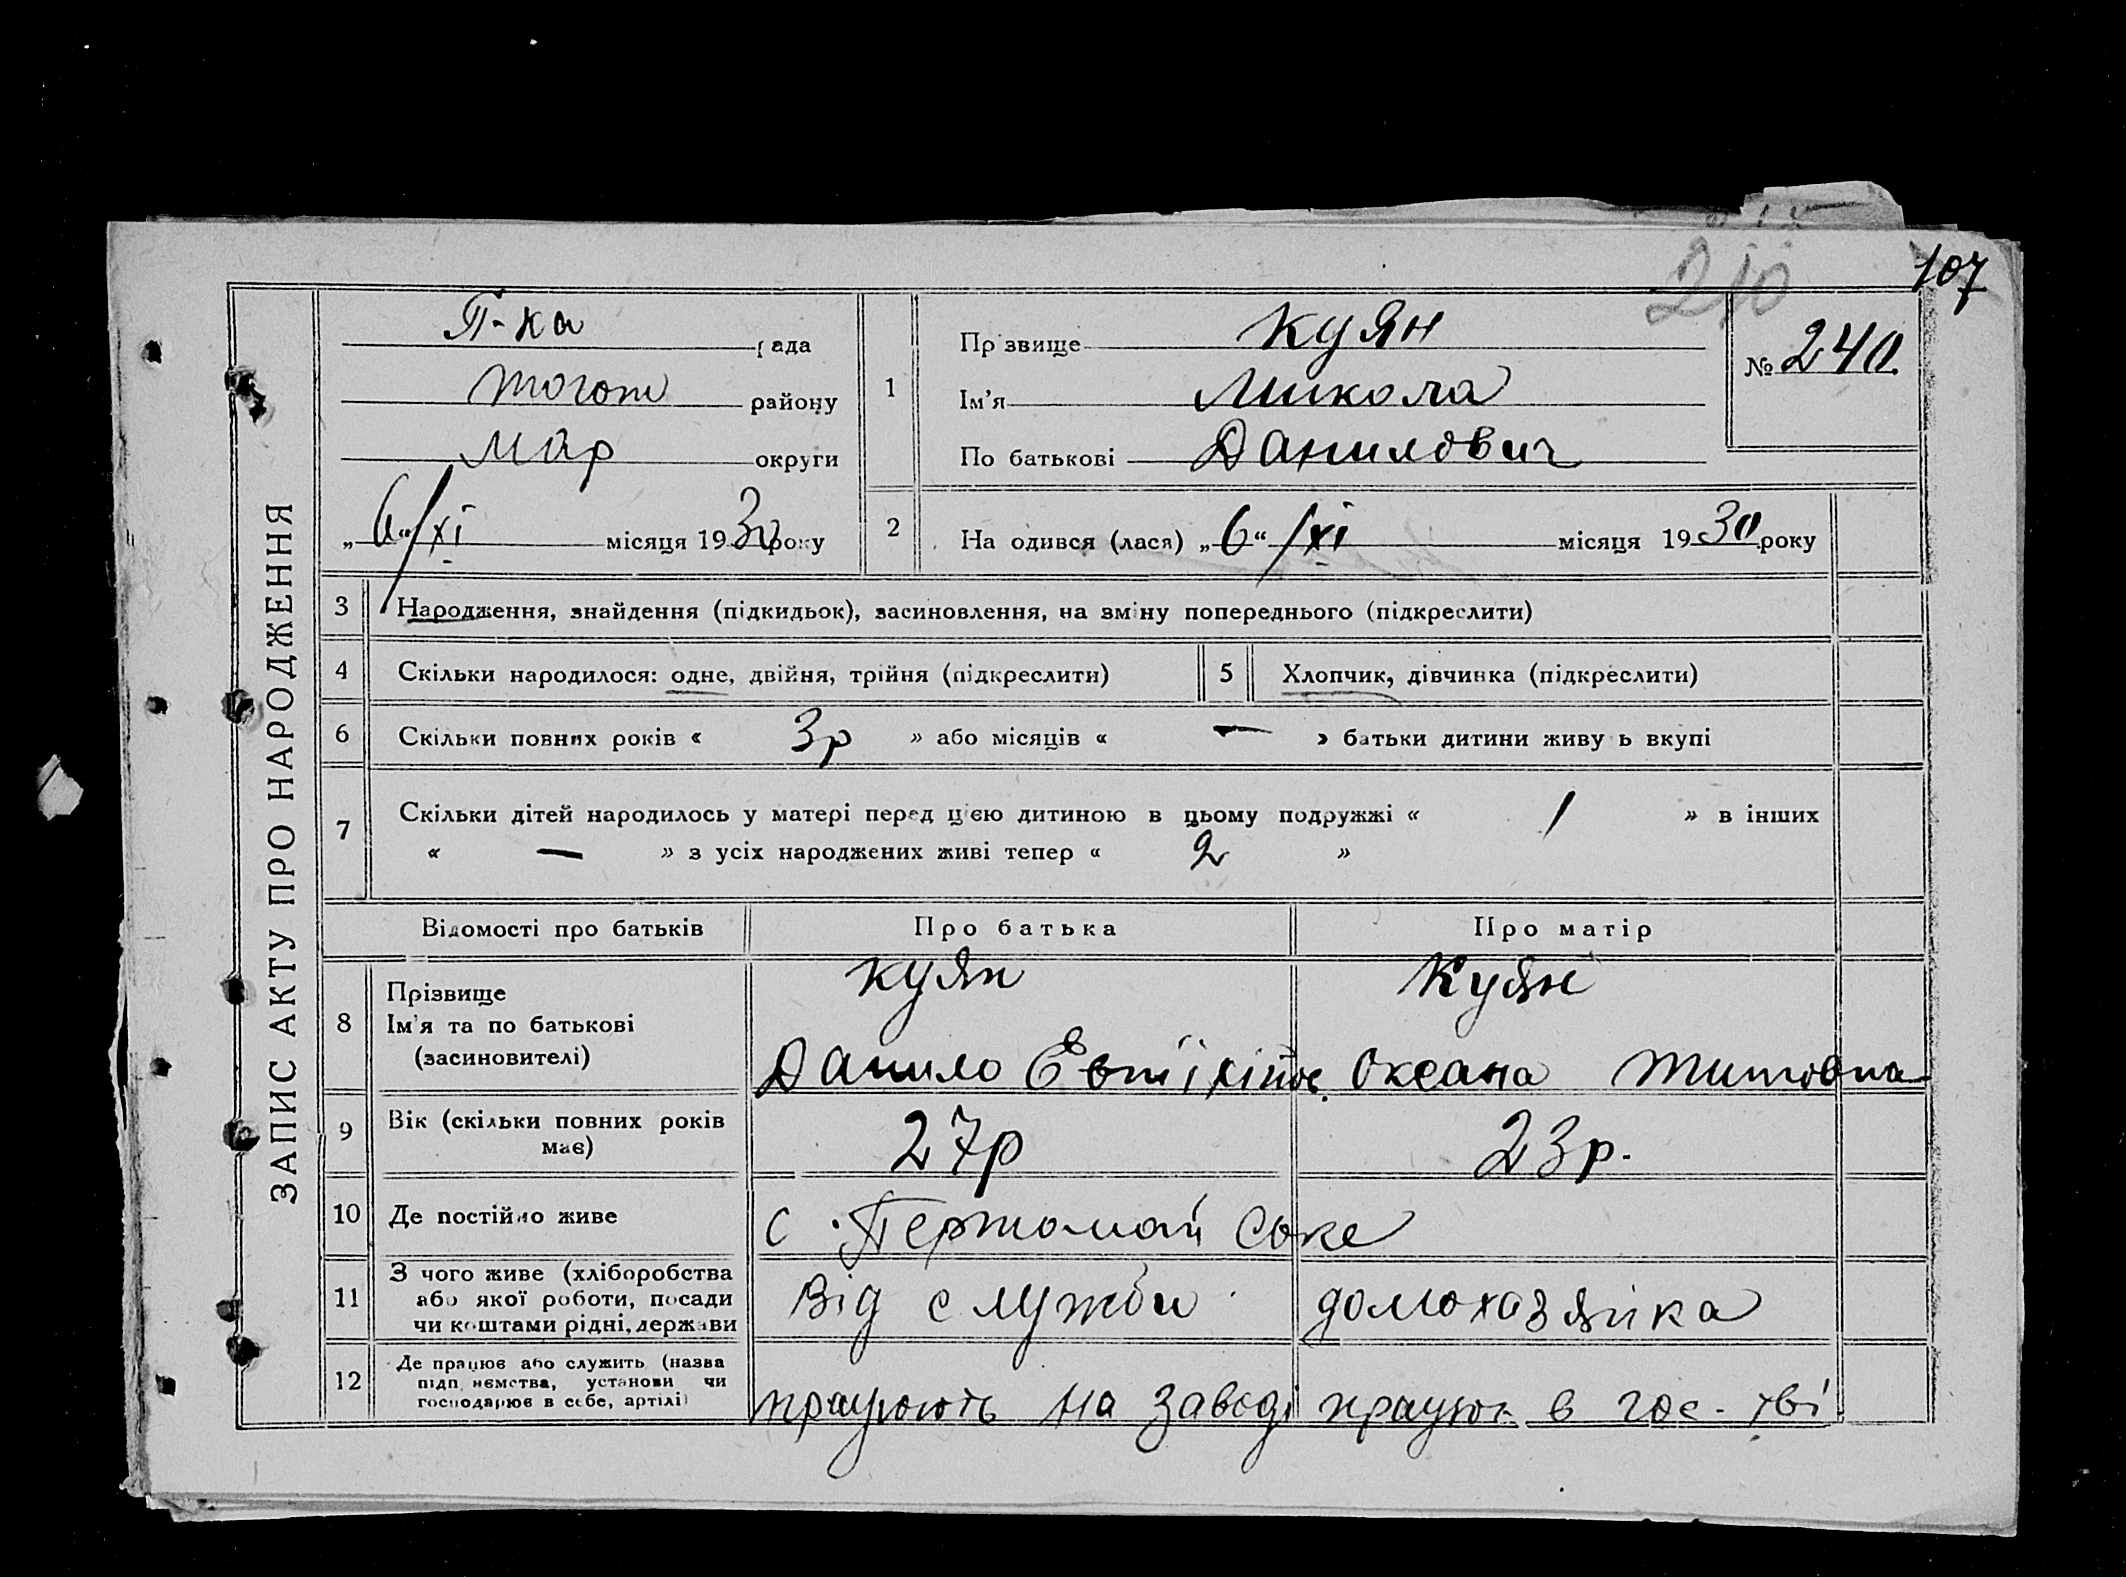 210
107
ЗАПИС АКТУ ПРО НАРОДЖЕННЯ
П-ка рада
тогож району
мар округи
„6“/xi місяця 1930 року
1
Прізвище Куян
Ім'я Микола
По батькові Данилович
№ 240
2 На одився (лася) „6“ /xi місяця 1930 року
3 Народження, знайдення (підкидьок), засиновлення, на зміну попереднього (підкреслити)
4 Скільки народилося: одне, двійня, трійня (підкреслити)
5 Хлопчик, дівчинка (підкреслити)
6 Скільки повних років « 3р » або місяців « — » батьки дитини живу ь вкупі
7 Скільки дітей народилось у матері перед цією дитиною в цьому подружжі « 1 » в інших
« — » з усіх народжених живі тепер « 2 »
Відомості про батьків Про батька Про матір
8 Прізвище
Ім'я та по батькові
(засиновителі)
Куян
Данило
Куян
Оксана Титовна
9 Вік (скільки повних років
має)
27р 23р.
10 Де постійно живе
с. Первомайське
11 З чого живе (хліборобства
або якої роботи, посади
чи коштами рідні, держави
Від служби домохазяйка
12 Де працює або служить (назва
підп иємства, установи чи
господарює в себе, артілі)
працюють на заводі працює в гос-тві